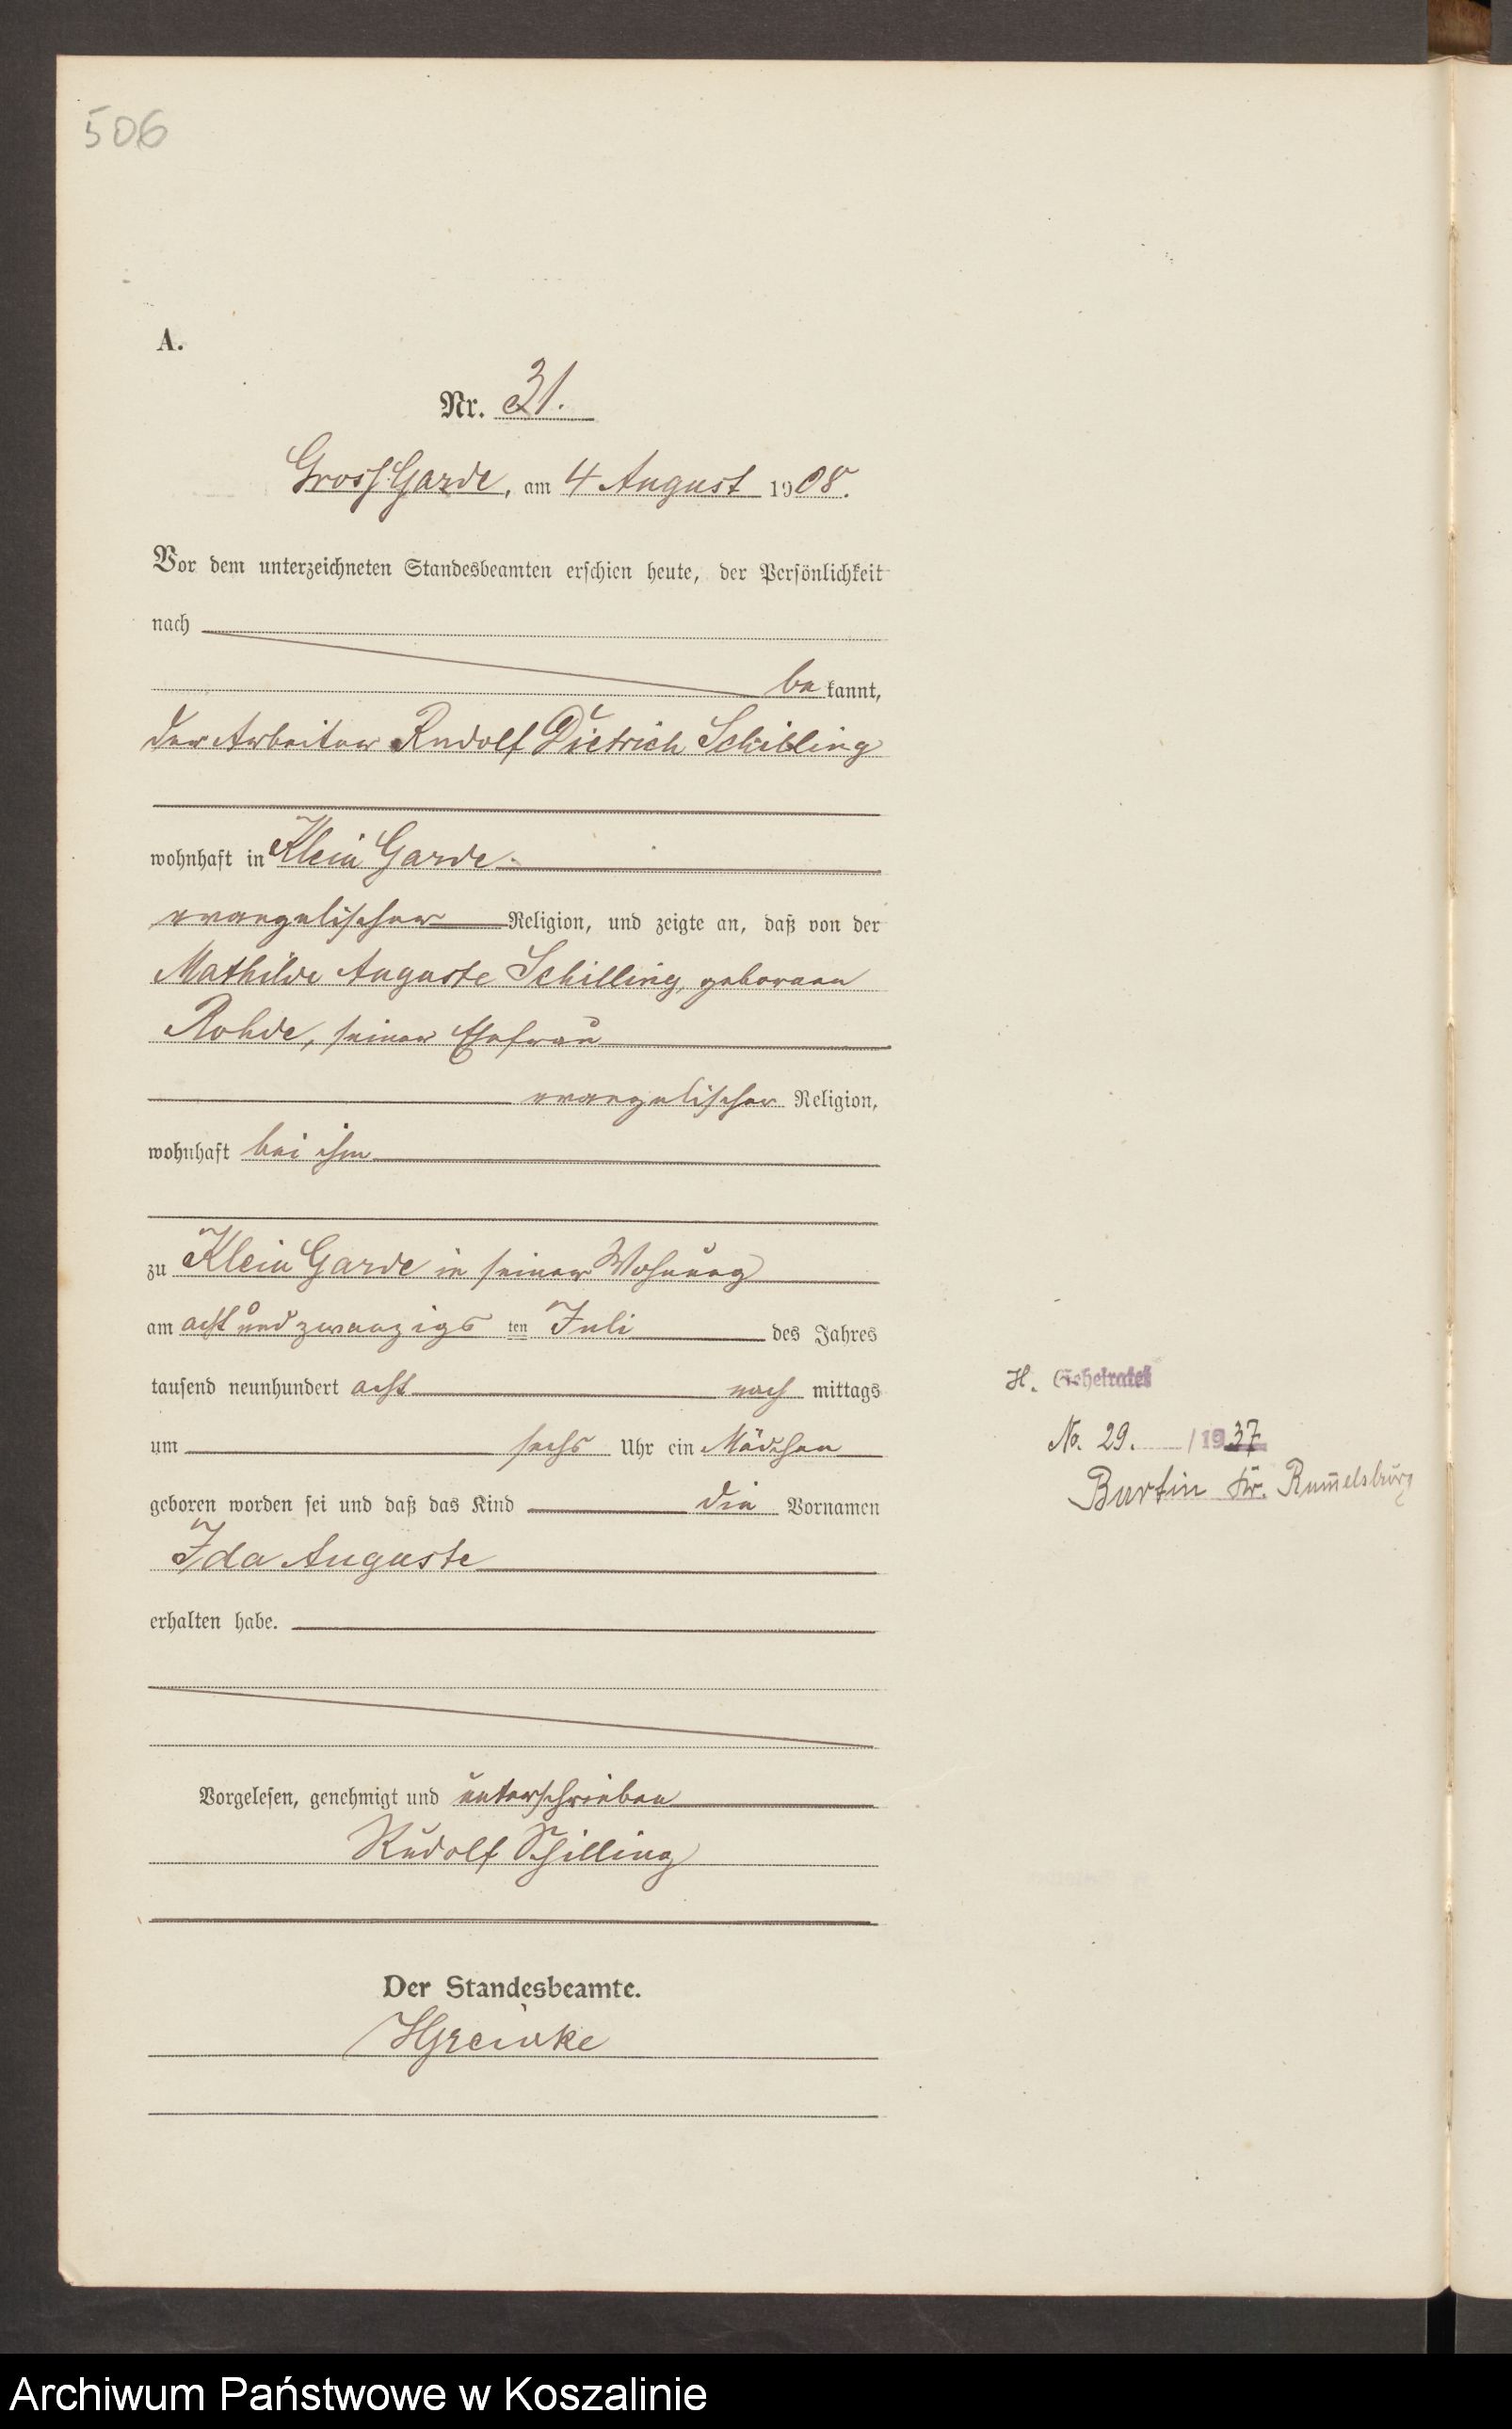 506
A.
Nr. 31.
Gross Garde, am 4 August 1908.
Vor dem unterzeichneten Standesbeamten erschien heute, der Persönlichkeit
nach
be kannt,
der Arbeiter Rudolf Dietrich Schilling
wohnhaft in Klein Garde
evangelischer Religion, und zeigte an, daß von der
Mathilde Auguste Schilling, geborenen
Rohde, seiner Ehefrau
evangelischer Religion,
wohnhaft bei ihm
zu Klein Garde in seiner Wohnung
am acht und zwanzigs ten Juli des Jahres
tausend neunhundert acht nach mittags
um sechs Uhr ein Mädchen
geboren worden sei und daß das Kind die Vornamen
Ida Auguste
erhalten habe.
Vorgelesen, genehmigt und unterschrieben
Rudolf Schilling
Der Standesbeamte.
H. Geheiratet
No. 29. /1937
Bartin Kr. Rum̄elsburg
Archiwum Państwowe w Koszalinie